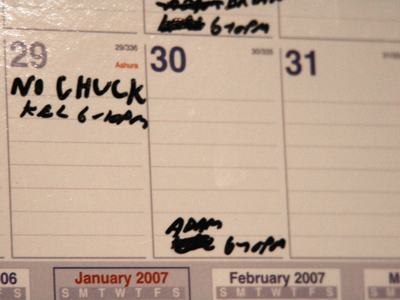 6-10PM
29 29/336 30 30/335 31
Ashura
NO CHUCK
KEL 6-10PM
ADAM
6-10PM
06 January 2007 February 2007 M
S M T W T F S S M T W T F S